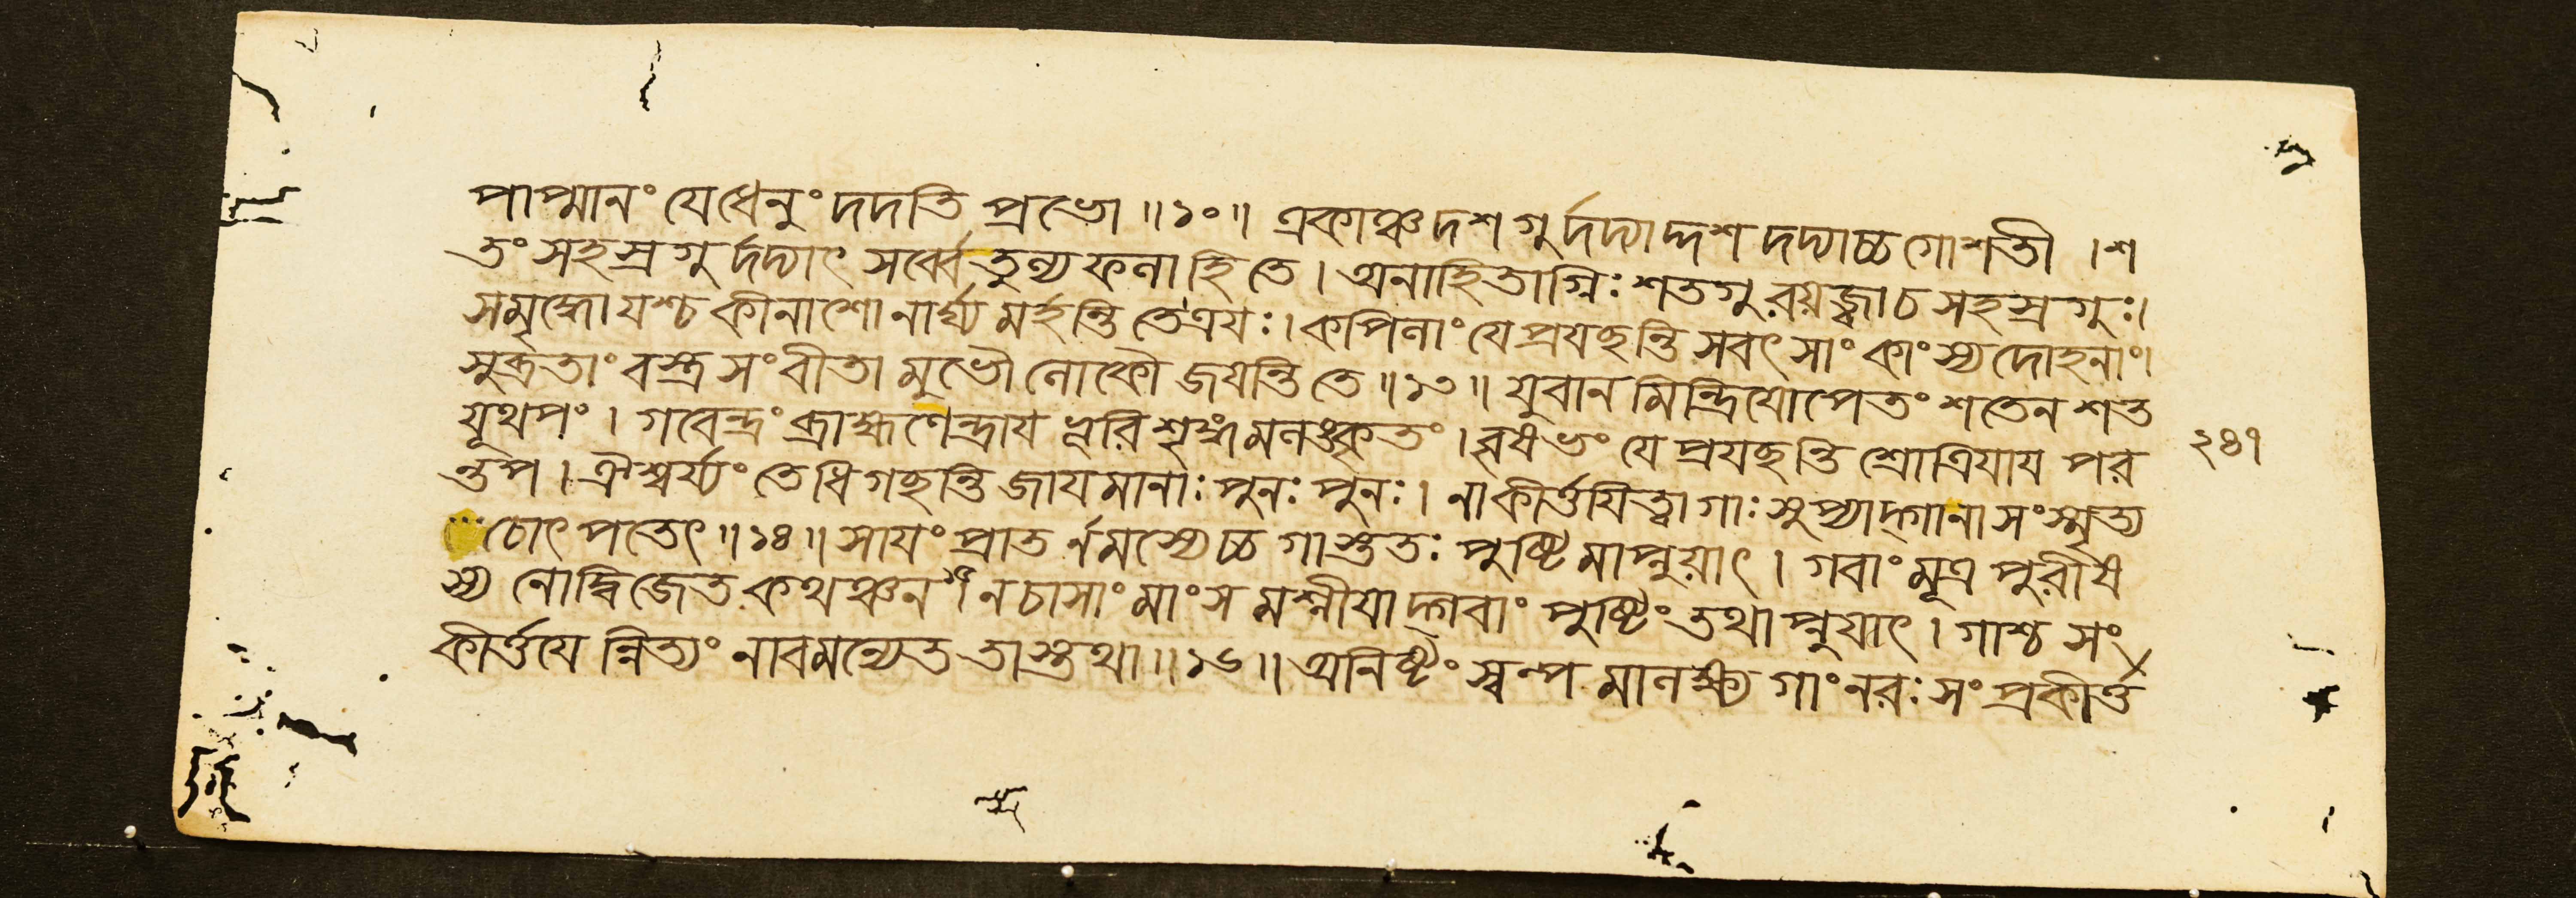 পাপ্মানং যেধেনুং দদতি প্রভো ॥১০॥ একাঞ্চ দশগুর্দদ্যাদ্দশ দদ্যাচ্চ গোশতী । শ
তং সহস্রগুর্দদ্যাৎ সর্ব্বে তুল্য ফলাহি তে । অনাহিতাগ্নিঃ শতগুরযজ্বাচ সহস্রগুঃ।
সমৃদ্ধোযশ্চ কীনাশো নার্ঘ্যমর্হন্তি তেত্রয়ঃ। কপিলাং যে প্রযচ্ছন্তি সবৎসাং কাংস্যদোহনাং।
সুব্রতাং বস্ত্র সংবীতামুভৌ লোকৌ জয়ন্তি তে ॥১৩॥ যুবানমিন্দ্রিয়োপেতং শতেন শত
যূথপং । গবেন্দ্রং ব্রাহ্মণেন্দ্রায় ভূরিশৃঙ্গমলঙ্কৃতং । বৃষভং যে প্রযচ্ছন্তি শ্রোত্রিয়ায় পর
ন্তপ । ঐশ্বর্য্যং তেধিগচ্ছন্তি জায়মানাঃ পুনঃ পুনঃ । নাকীর্ত্তয়িত্বা গাঃ সুপ্যাদ্গানাসংস্মৃত্য
চোৎপতেৎ ॥১৪॥ সায়ং প্রাতর্নমস্যেচ্চ গাস্ততঃ পুষ্টিমাপ্নুয়াৎ । গবাং মূত্র পুরীষ
স্য নোদ্বিজেত কথঞ্চন । নচাসাং মাংসমশ্নীয়াদ্গবাং পুষ্টিং তথাপ্নুয়াৎ । গাশ্চ সং
কীর্ত্তয়েন্নিত্যং নাবমন্যেত তাস্তথা ॥১৬॥ অনিষ্টং স্বপ্নমালক্ষ্য গাং নরঃ সংপ্রকীর্ত্ত
২৪৭